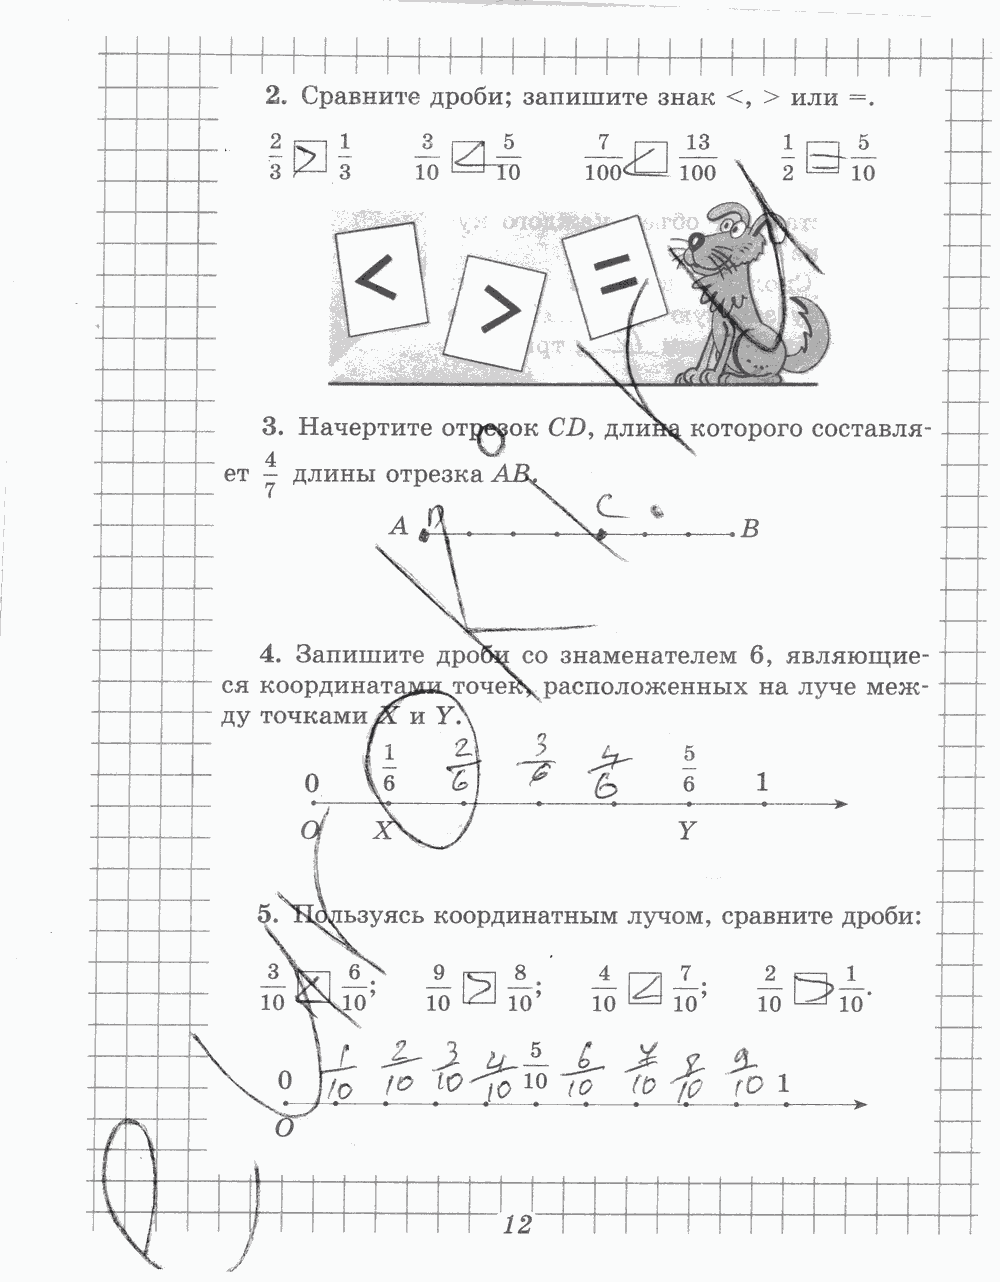 2. Сравните дроби; запишите знак <, > или =.
2/3 > 1/3   3/10 < 5/10   7/100 < 13/100   1/2 = 5/10
< > =
3. Начертите отрезок CD, длина которого составля-
ет 4/7 длины отрезка AB.
A D C B
4. Запишите дроби со знаменателем 6, являющие-
ся координатами точек, расположенных на луче меж-
ду точками X и Y.
0 1/6 2/6 3/6 4/6 5/6 1
O X Y
5. Пользуясь координатным лучом, сравните дроби:
3/10 < 6/10;   9/10 > 8/10;   4/10 < 7/10;   2/10 > 1/10.
0 1/10 2/10 3/10 4/10 5/10 6/10 7/10 8/10 9/10 1
O
12